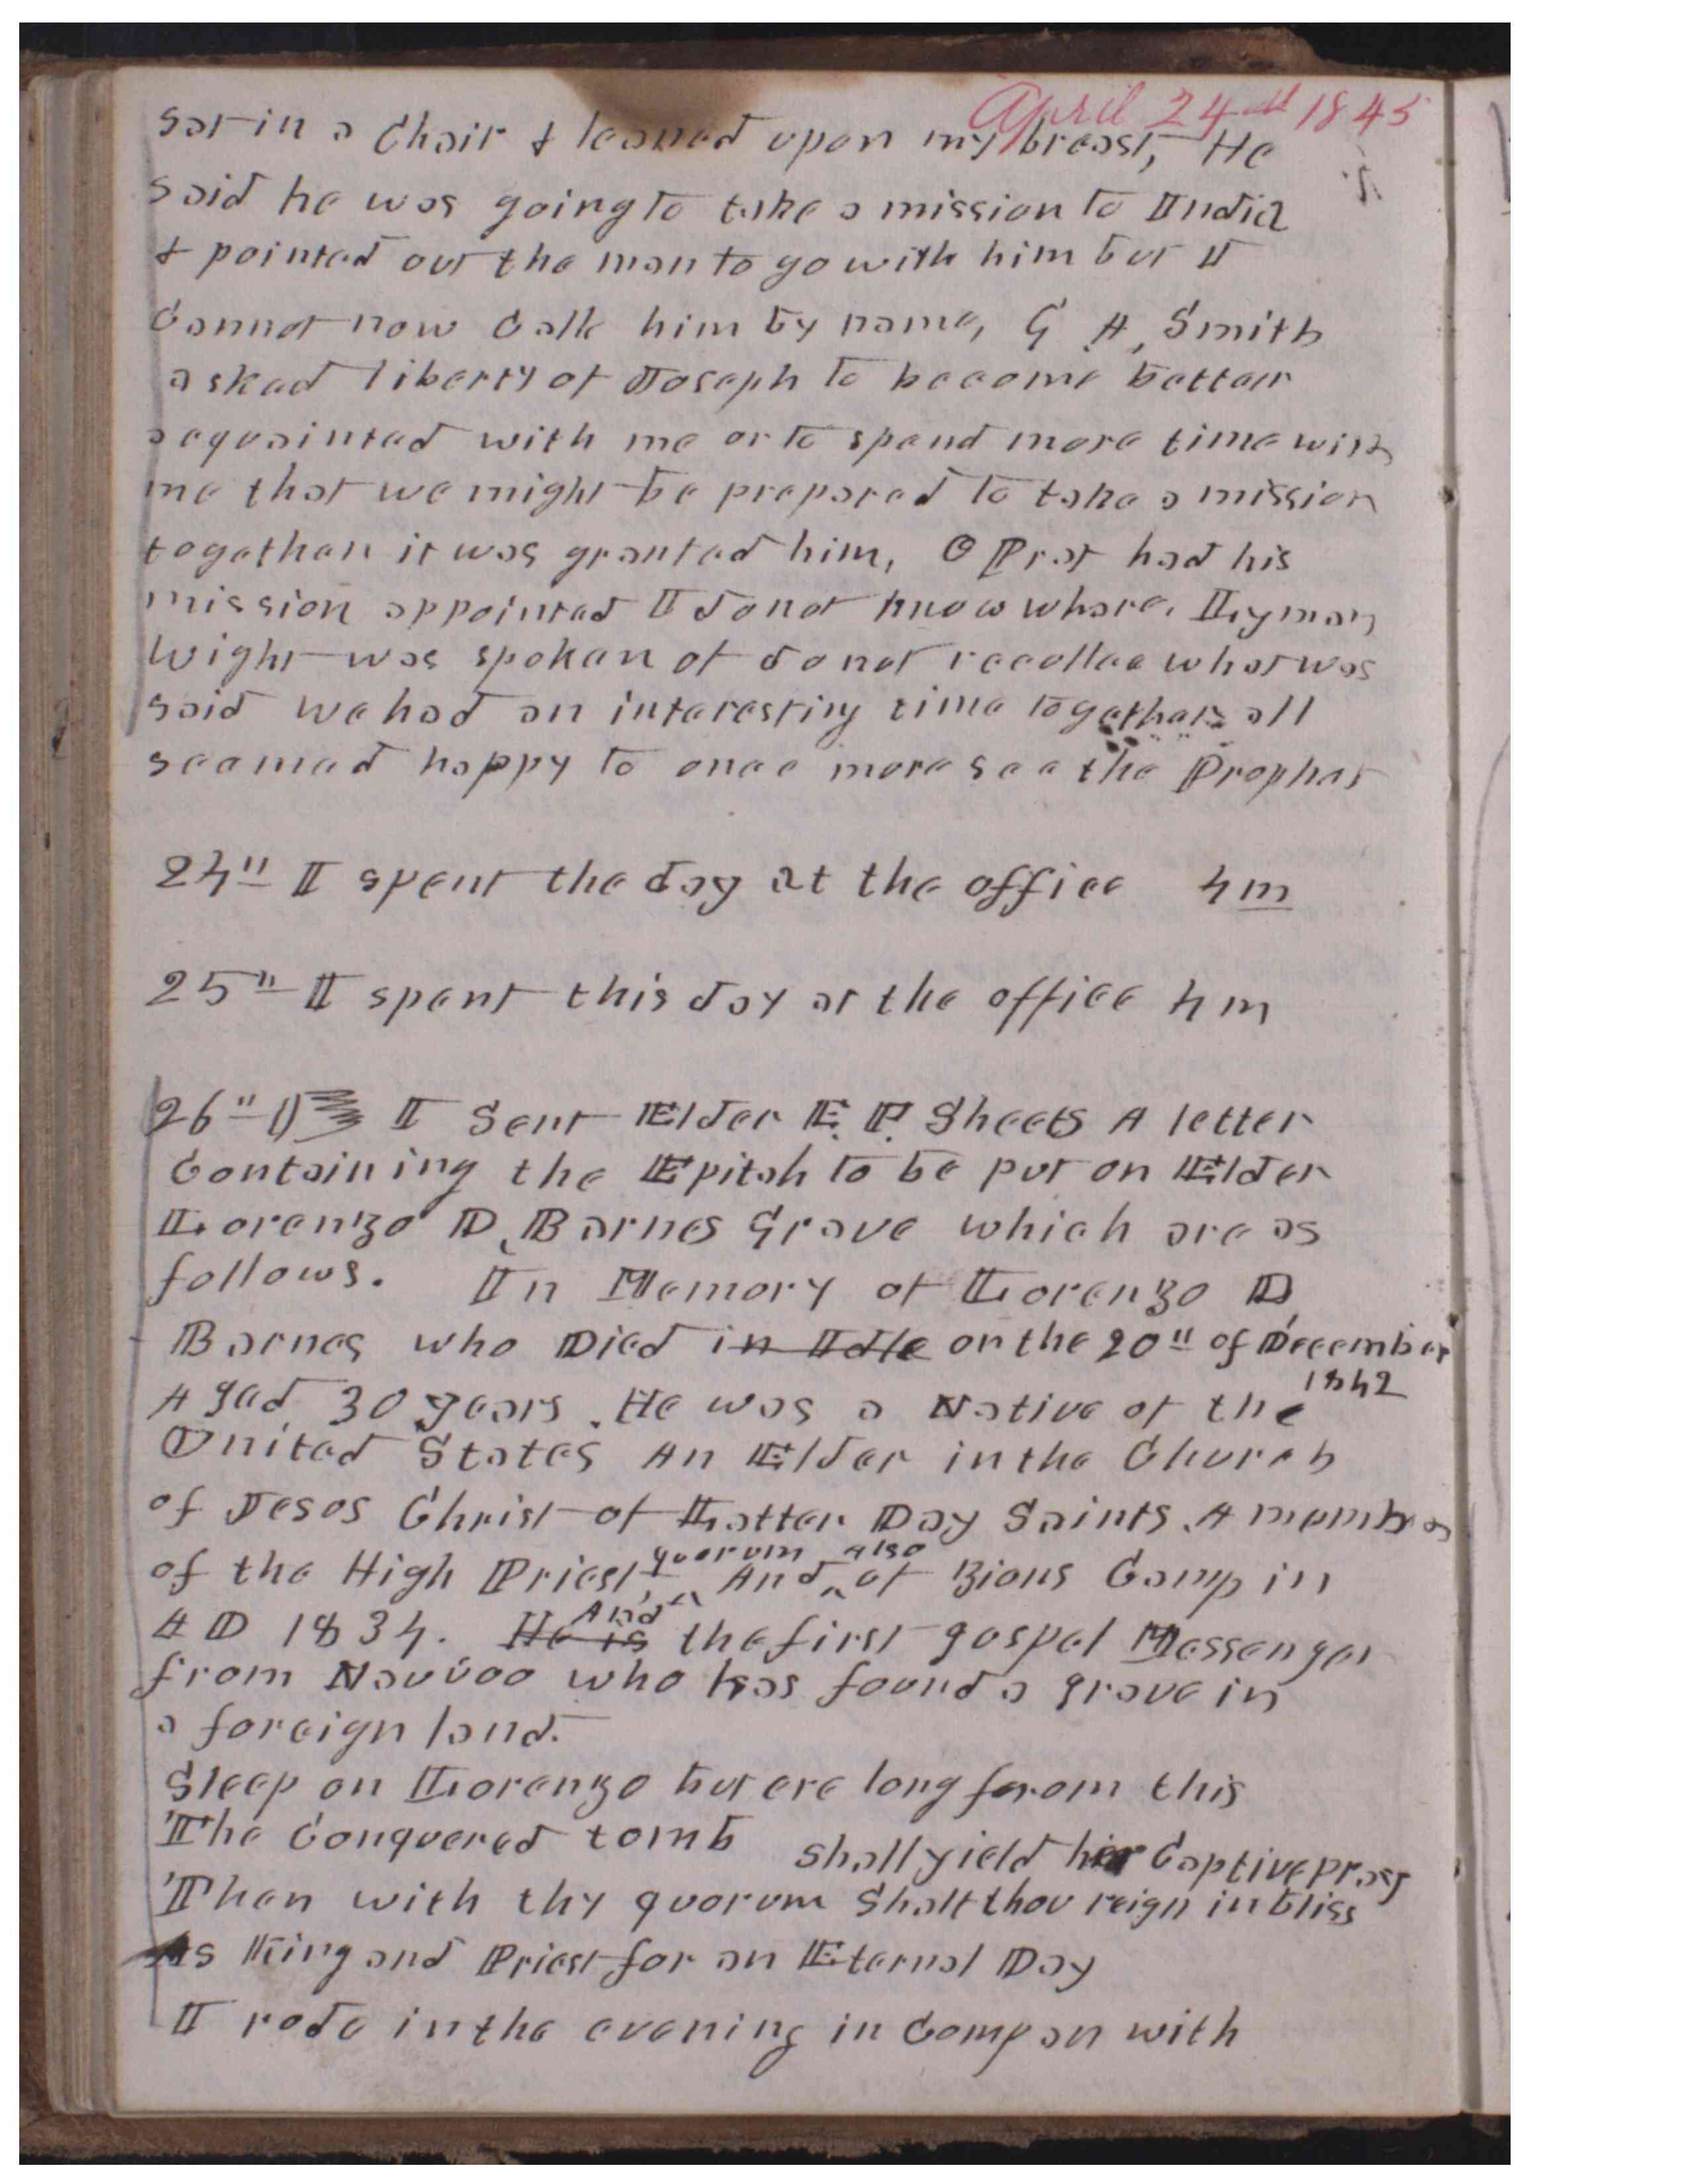 April 24th 1845
sat in a Chair & leaned upon my breast, He
said he was going to take a mission to India
& pointed out the man to go with him but I
Cannot now Call him by name, G A, Smith
asked liberty of Joseph to become better
acquainted with me or to spend more time with
me that we might be prepared to take a mission
together it was granted him, O Prat had his
mission appointed I do not know where. Lyman
Wight was spoken of do not recollec what was
said we had an interesting time together all
seemed happy to once more see the Prophet
24" I spent the day at the office 4 m
25" I spent this day at the office 4 m
26" I Sent Elder E. P. Sheets A letter
Containing the Epitah to be put on Elder
Lorenzo D, Barnes Grave which are as
follows. In Memory of Lorenzo D
Barnes who Died in Idle on the 20" of December
1842
Aged 30 years. He was a Native of the
United States An Elder in the Church
of Jesus Christ of Latter Day Saints. A member
of the High Priest, quorum And also of Zions Camp in
AD 1834. He is And the first gospel Messenger
from Nauvoo who has found a grave in
a foreign land.
Sleep on Lorenzo but ere long from this
The Conquered tomb shall yield her Captive prey
Then with thy quorum Shalt thou reign in bliss
As King and Priest for an Eternal Day
I rode in the evening in Compan with